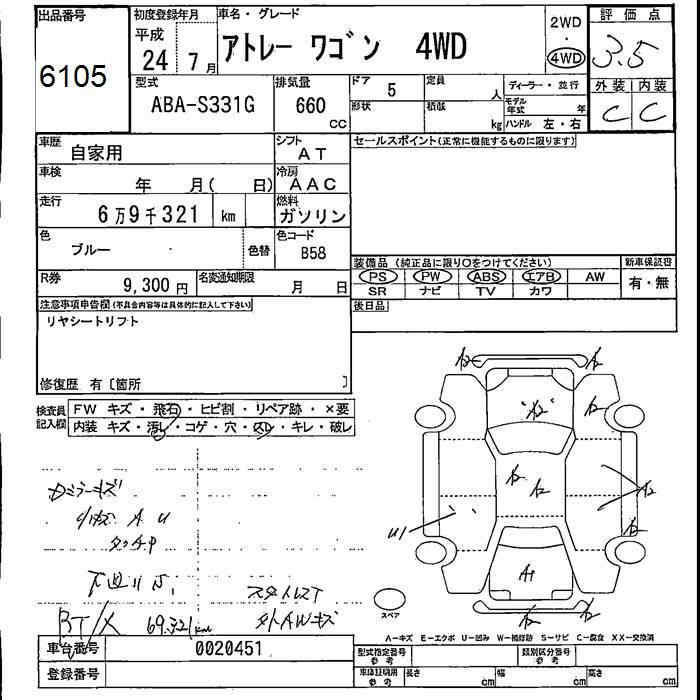 出品番号
6105
初度登録年月
平成
24 7月
車名・グレード
アトレー ワゴン 4WD
2WD
・
4WD
評価点
3.5
外装 内装
C C
型式
ABA-S331G
排気量
660
CC
ドア 5
定員
人
形状
積載
kg
ディーラー・並行
モデル年式 年
ハンドル 左・右
車歴 自家用
シフト AT
セールスポイント(正常に機能するものに限ります)
車検 年 月( 日)
冷房 AAC
走行 6万9千321 km
燃料 ガソリン
色 ブルー
色替
色コード B58
R券 9,300円
名変通知期限 月 日
装備品(純正品に限り○をつけてください)
新車保証書
PS PW ABS エアB AW
有・無
SR ナビ TV カワ
後日品
注意事項申告欄(不具合内容等は具体的に記入して下さい)
リヤシートリフト
修復歴 有〔箇所 〕
検査員記入欄
FW キズ・飛石・ヒビ割・リペア跡・×要
内装 キズ・汚レ・コゲ・穴・スレ・キレ・破レ
Dミラーキズ
A U
タッチP
スタットレスT
BT/X 69.321km
外AWキズ
A2 A2
A2 A2
A2 A2
A2
U1
A2
A1
A2 A2
スペア
A-キズ E-エクボ U-凹み W-補修跡 S-サビ C-腐食 XX-交換済
車台番号 0020451
登録番号
型式指定番号 参考
類別区分番号 参考
車庫証明用 参考
長さ cm
幅 cm
高さ cm